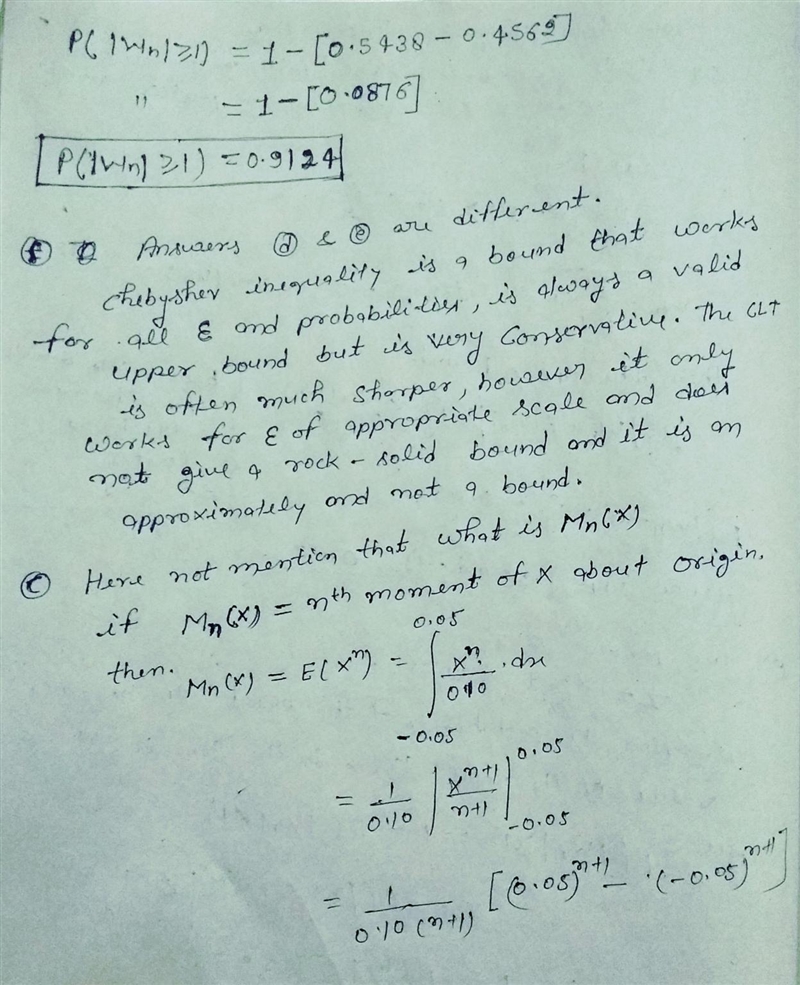 P(|Wn|≥1) = 1-[0.5438-0.4562]
" = 1-[0.0876]
P(|Wn|≥1) = 0.9124
(f) Answers (d) & (e) are different.
Chebysher inequality is a bound that works
for all ε and probabilities, is always a valid
upper bound but is very Conservative. The CLT
is often much sharper, however it only
works for ε of appropriate scale and does
not give a rock-solid bound and it is an
approximately and not a bound.
(c) Here not mention that what is Mn(x)
if Mn(x) = nth moment of x about origin.
then. Mn(x) = E(x^n) = ∫_{-0.05}^{0.05} x^n/0.10 . dx
= 1/0.10 |x^{n+1}/n+1|_{-0.05}^{0.05}
= 1/0.10(n+1) [(0.05)^{n+1} - (-0.05)^{n+1}]